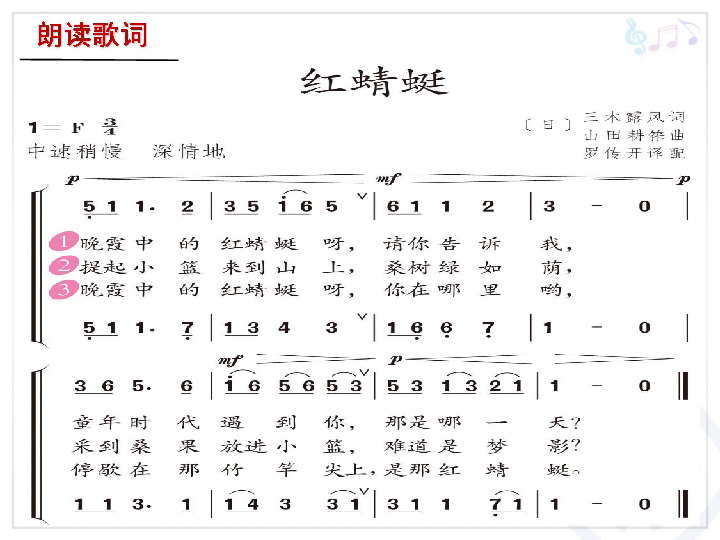 朗读歌词
红蜻蜓
1= F 3/4
〔日〕三木露风词
山田耕筰曲
中速稍慢 深情地
罗传开译配
p mf p
5 1 1· 2 | 3 5 i 6 5 ∨ | 6 1 1 2 | 3 – 0 |
1 晚霞中的红蜻蜓呀，请你告诉我，
2 提起小篮来到山上，桑树绿如荫，
3 晚霞中的红蜻蜓呀，你在哪里哟，
5 1 1· 7 | 1 3 4 3 ∨ | 1 6 6 7 | 1 – 0 |
mf p
3 6 5· 6 | i 6 5 6 5 3 ∨ | 5 3 1 3 2 1 | 1 – 0 ‖
童年时代遇到你，那是哪一天？
采到桑果放进小篮，难道是梦影？
停歇在那竹竿尖上，是那红蜻蜓。
1 1 3· 1 | 1 4 3 3 1 ∨ | 3 1 1 7 1 | 1 – 0 ‖